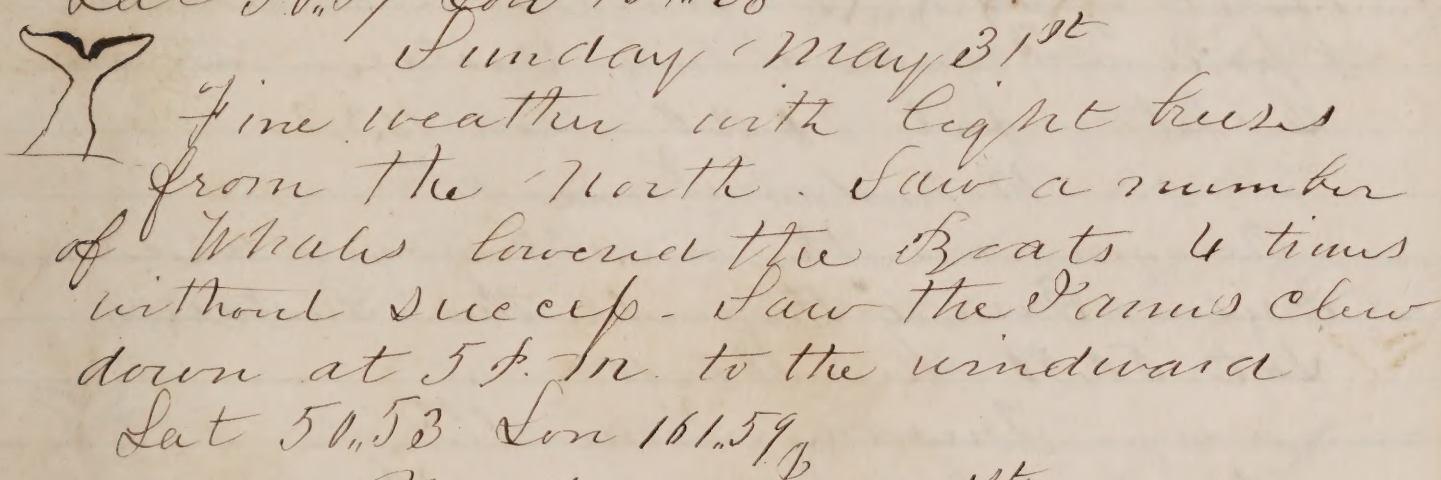 Sunday May 31st
Fine weather with light breezes
from the North. Saw a number
of Whales lowered the Boats 4 times
without success - Saw the Janus clew
down at 5 P. M. to the windward
Lat 50,,53 Lon 161,,59